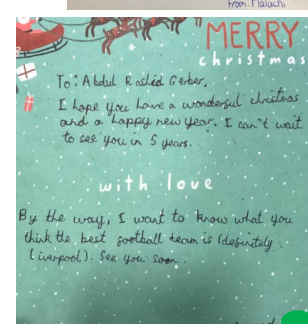 from: Malachi
MERRY
christmas
To: Abdul Rashid Gerber,
I hope you have a wonderful christmas
and a happy new year. I can't wait
to see you in 5 years.
with love
By the way, I want to know what you
think the best football team is (definitely
Liverpool). See you soon.